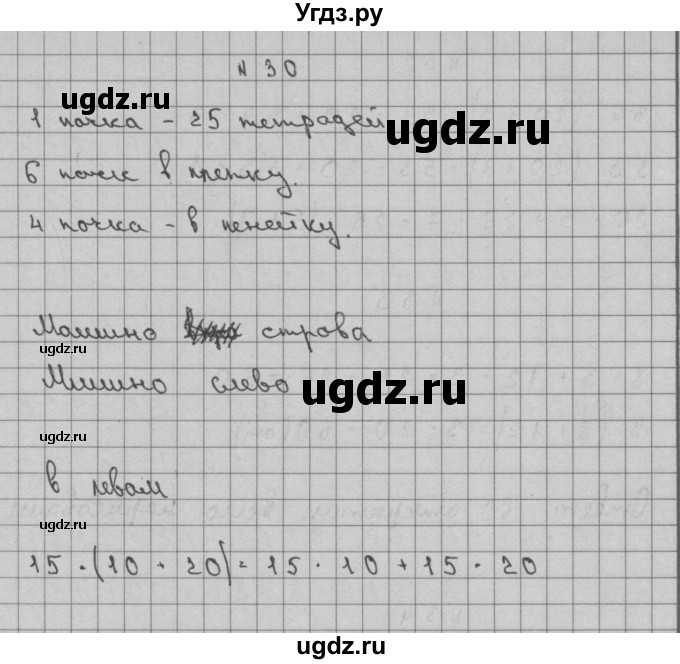 Угдз.ру
N 30
ugdz.ru
1 пачка - 25 тетрадей
ugdz.ru
6 пачек в клетку.
4 пачка - в линейку.
Машино строва
ugdz.ru
Мишино слево
ugdz.ru
ugdz.ru
в левом
ugdz.ru
15 · (10 + 20) = 15 · 10 + 15 · 20
ugdz.ru